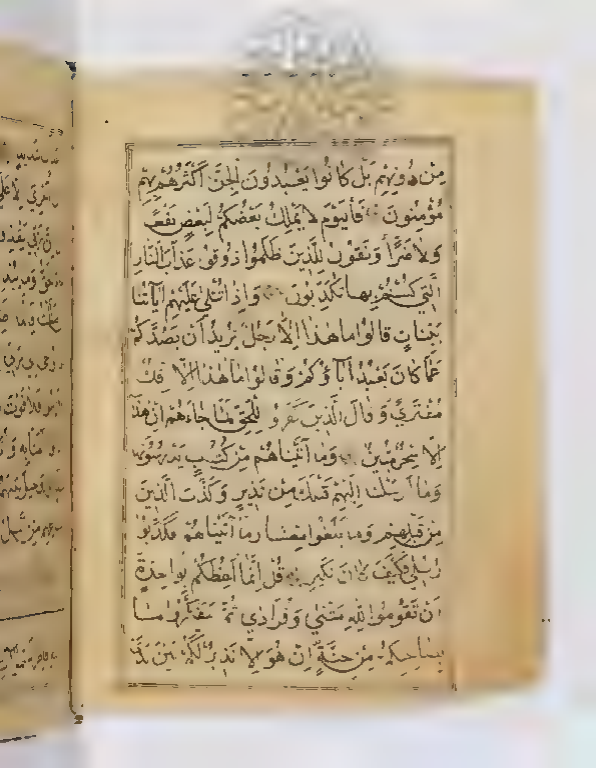 مِنْ دُونِهِمْ بَلْ كَانُوا يَعْبُدُونَ الْجِنَّ أَكْثَرُهُمْ بِهِمْ
مُؤْمِنُونَ فَالْيَوْمَ لَا يَمْلِكُ بَعْضُكُمْ لِبَعْضٍ نَفْعًا
وَلَا ضَرًّا وَنَقُولُ لِلَّذِينَ ظَلَمُوا ذُوقُوا عَذَابَ النَّارِ
الَّتِي كُنْتُمْ بِهَا تُكَذِّبُونَ وَإِذَا تُتْلَى عَلَيْهِمْ آيَاتُنَا
بَيِّنَاتٍ قَالُوا مَا هَذَا إِلَّا رَجُلٌ يُرِيدُ أَنْ يَصُدَّكُمْ
عَمَّا كَانَ يَعْبُدُ آبَاؤُكُمْ وَقَالُوا مَا هَذَا إِلَّا إِفْكٌ
مُفْتَرًى وَقَالَ الَّذِينَ كَفَرُوا لِلْحَقِّ لَمَّا جَاءَهُمْ إِنْ هَذَا
إِلَّا سِحْرٌ مُبِينٌ وَمَا آتَيْنَاهُمْ مِنْ كُتُبٍ يَدْرُسُونَهَا
وَمَا أَرْسَلْنَا إِلَيْهِمْ قَبْلَكَ مِنْ نَذِيرٍ وَكَذَّبَ الَّذِينَ
مِنْ قَبْلِهِمْ وَمَا بَلَغُوا مِعْشَارَ مَا آتَيْنَاهُمْ فَكَذَّبُوا
رُسُلِي فَكَيْفَ كَانَ نَكِيرِ قُلْ إِنَّمَا أَعِظُكُمْ بِوَاحِدَةٍ
أَنْ تَقُومُوا لِلَّهِ مَثْنَى وَفُرَادَى ثُمَّ تَتَفَكَّرُوا مَا
بِصَاحِبِكُمْ مِنْ جِنَّةٍ إِنْ هُوَ إِلَّا نَذِيرٌ لَكُمْ بَيْنَ يَدَيْ